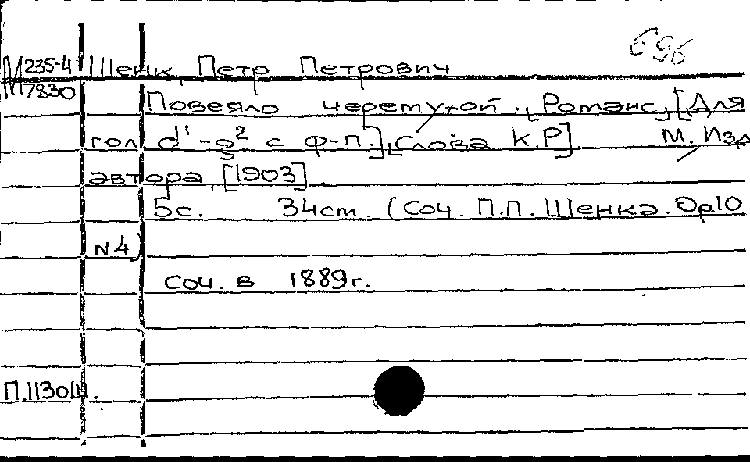 696
М 235-4 Шенк, Петр Петрович
М 7830
Повеяло черемухой. [Романс] [Для
гол. d¹-g² с ф-п.], Слова К.Р] М. Изд.
автора, [1903]
5с. 34cm. (Соч. П.П. Шенка. Op10
N4)
Соч. в 1889г.
П.1130/11.